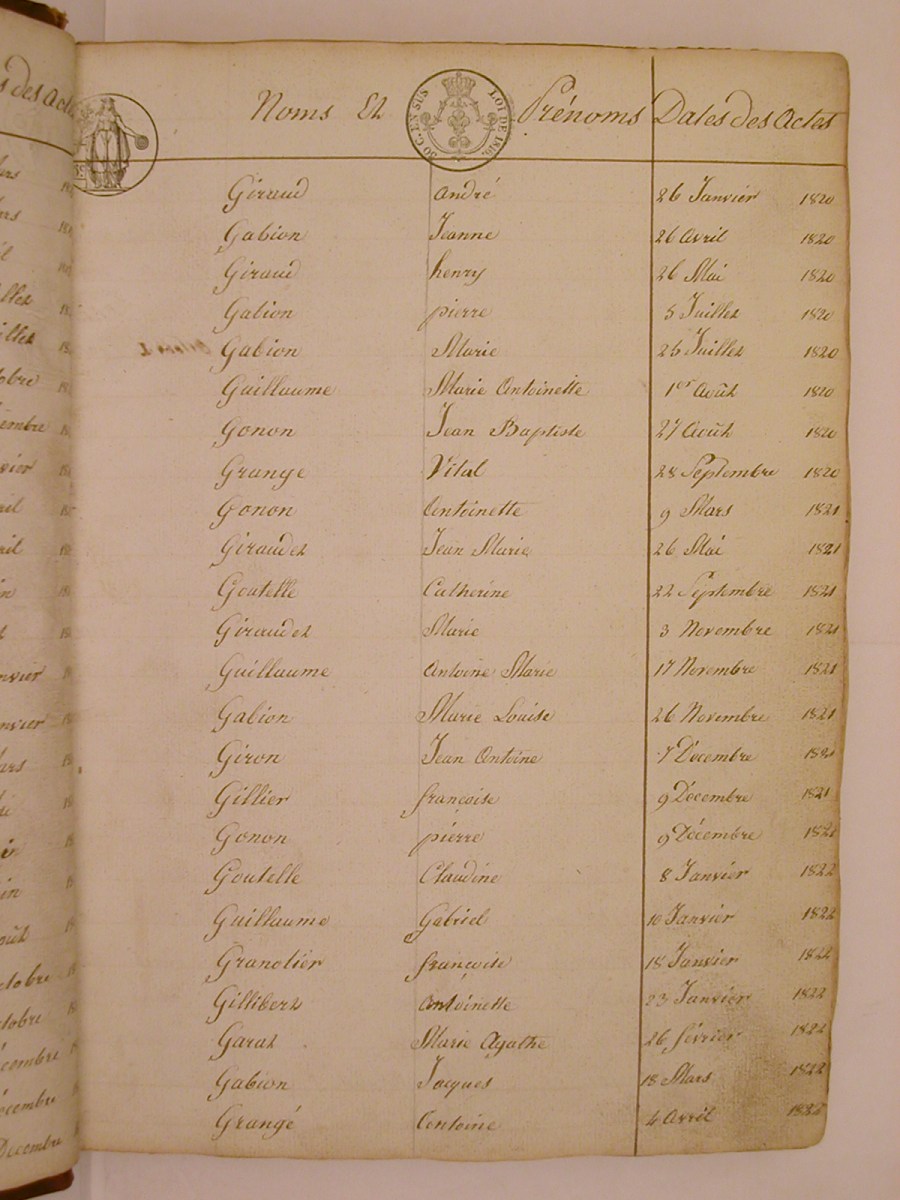 Noms Et Prénoms Dates des Actes
50 C. EN SUS LOI DE 1816.
Giraud André 26 Janvier 1820
Gabion Jeanne 26 Avril 1820
Giraud henry 26 Mai 1820
Gabion pierre 5 Juillet 1820
Gabion Marie 26 Juillet 1820
Guillaume Marie Antoinette 1er Août 1820
Gonon Jean Baptiste 27 Août 1820
Grange Vital 28 Septembre 1820
Gonon Antoinette 9 Mars 1821
Giraudet Jean Marie 26 Mai 1821
Goutelle Catherine 22 Septembre 1821
Giraudet Marie 3 Novembre 1821
Guillaume Antoine Marie 17 Novembre 1821
Gabion Marie Louise 26 Novembre 1821
Giron Jean Antoine 7 Décembre 1821
Gillier françoise 9 Décembre 1821
Gonon pierre 9 Décembre 1821
Goutelle Claudine 8 Janvier 1822
Guillaume Gabriel 10 Janvier 1822
Granotier françoise 18 Janvier 1822
Gillibert Antoinette 23 Janvier 1822
Garat Marie Agathe 26 février 1822
Gabion Jacques 18 Mars 1822
Grangé Antoine 4 Avril 1822